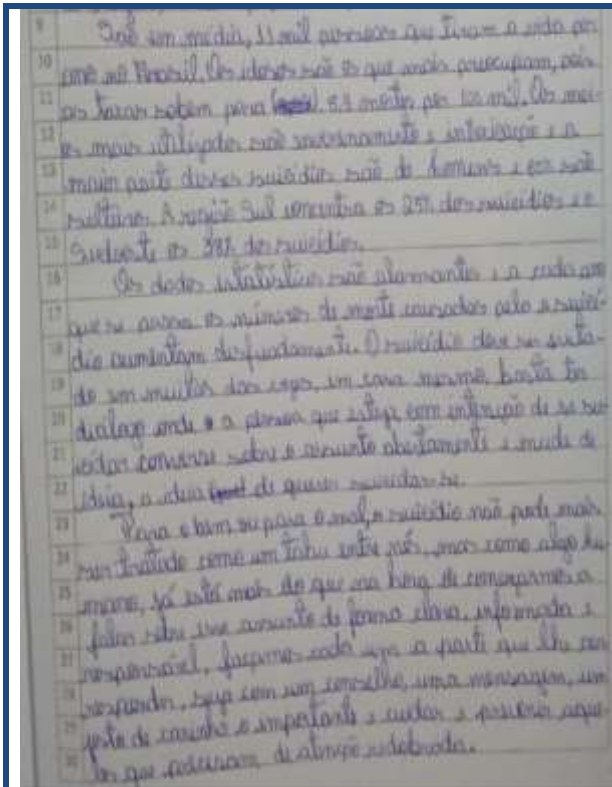 9 São em média, 11 mil pessoas que tiram a vida por
10 ano no Brasil. Os idosos são os que mais preocupam, pois
11 as taxas sobem para 8.9 mortes por 100 mil. Os mei-
12 os mais utilizados são envenenamento e intoxicação e a
13 maior parte desses suicídios são de homens e eles são
14 solteiros. A região Sul concentra os 25% dos suicídios e o
15 Sudeste os 38% dos suicídios.
16 Os dados estatísticos são alarmantes e a cada ano
17 que se passa os números de morte causados pelo suicí-
18 dio aumentam. O suicídio deve ser evita-
19 do em muitos dos casos, em casa mesmo, basta ter
20 diálogo onde a pessoa que esteja com intenção de se sui-
21 cidar converse sobre o assunto abertamente e mude de
22 ideia, a ideia de querer suicidar-se.
23 Para o bem ou para o mal, o suicídio não pode mais
24 ser tratado como um tabu entre nós, mas como algo hu-
25 mano, já está mais do que na hora de começarmos a
26 falar sobre esse assunto de forma clara, informada e
27 responsável, façamos cada um a parte que lhe cor-
28 responder, seja com um conselho, uma mensagem, um
29 gesto de carinho o importante é cuidar e prevenir aque-
30 les que precisam de atenção redobrada.